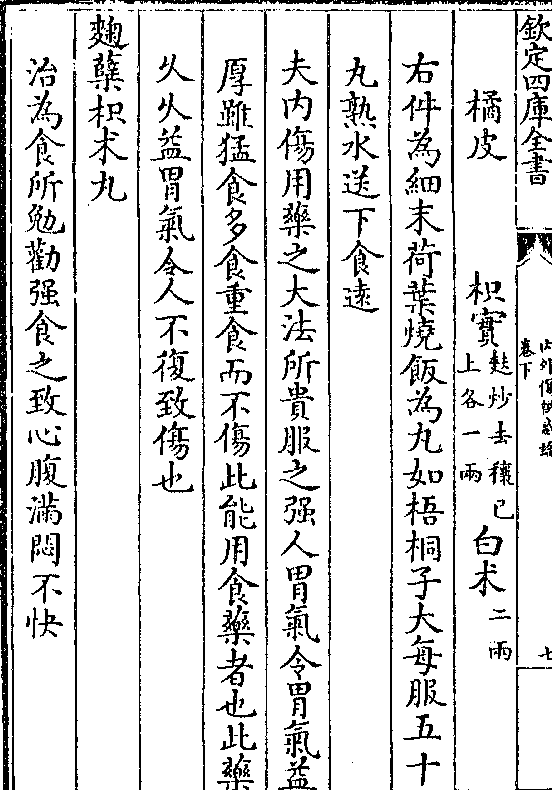 欽定四庫全書
卷下
七
橘皮 枳實麩炒去穰已上各一兩白术二兩
右件為細末荷葉燒飯為丸如梧桐子大每服五十
丸熟水送下食遠
夫内傷用藥之大法所貴服之强人胃氣令胃氣益
厚雖猛食多食重食而不傷此能用食藥者也此藥
久久益胃氣令人不復致傷也
麴蘖枳术丸
治為食所勉勸强食之致心腹滿悶不快